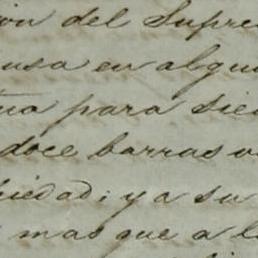 ion del Supre
usa en algu
ua para sie
doce barras o
piedad; ya su
mas que a l